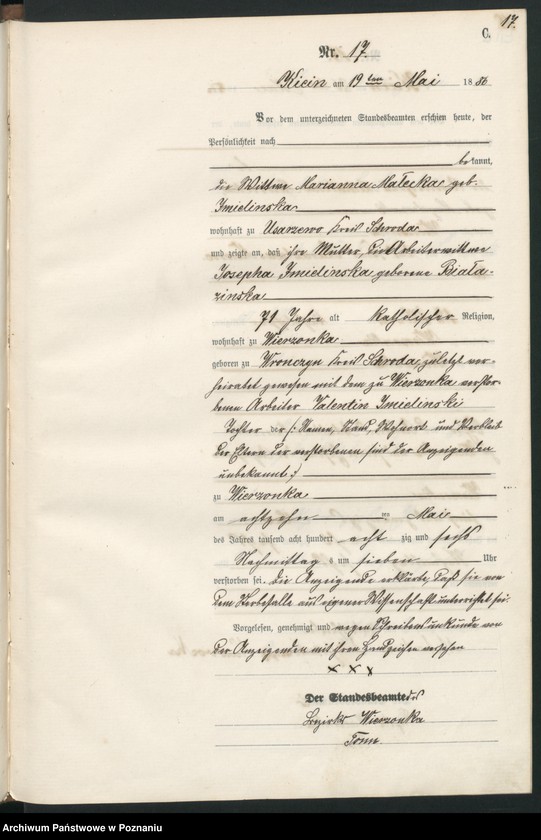 17.
C.
Nr. 17.
Kicin am 19ten Mai 1886
Vor dem unterzeichneten Standesbeamten erschien heute, der
Persönlichkeit nach
bekannt,
die Wittwe Marianna Małecka geb.
Imielinska
wohnhaft zu Usarzewo Kreis Schroda
und zeigte an, daß ihre Mutter, die Arbeiterwittwe
Josepha Imielinska geborene Biała-
zinska
71 Jahre alt katholischer Religion,
wohnhaft zu Wierzonka
geboren zu Wronczyn Kreis Schroda zuletzt ver-
heiratet gewesen mit dem zu Wierzonka verstor-
benen Arbeiter Valentin Imielinski
Tochter der /: Namen, Stand, Wohnort und Verbleib
der Eltern der verstorbenen sind der Anzeigenden
unbekannt :/
zu Wierzonka
am achtzehn ten Mai
des Jahres tausend acht hundert acht zig und sechs
Nachmittags um sieben Uhr
verstorben sei. Die Anzeigende erklärte, daß sie von
dem Sterbefalle aus eigener Wissenschaft unterrichtet sei.
Vorgelesen, genehmigt und wegen Schreibensunkunde von
der Anzeigenden mit ihren Handzeichen versehen
x x x
Der Standesbeamte des
Bezirks Wierzonka
Tonn.
Archiwum Państwowe w Poznaniu